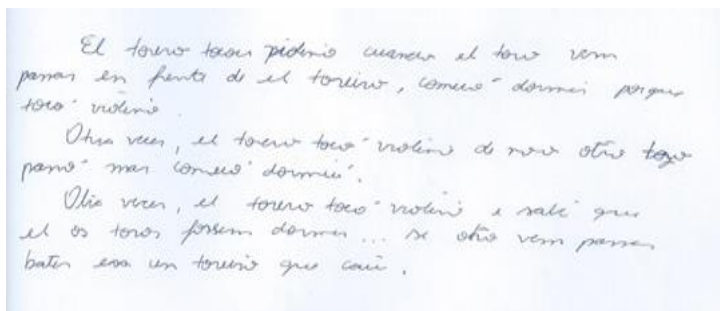 El torero tocou pidinio cuando el toro vem
passar en frente de el toreiro, comeco' dormir porque
toco' violino.
Otra veces, el torero toco' violino de novo otro toro
passo' mas comeco' dormir.
Otra veces, el torero toco' violino e sabe' que
el os toros fossem dormir... se otro vem passar
bater en un toreiro que cair.